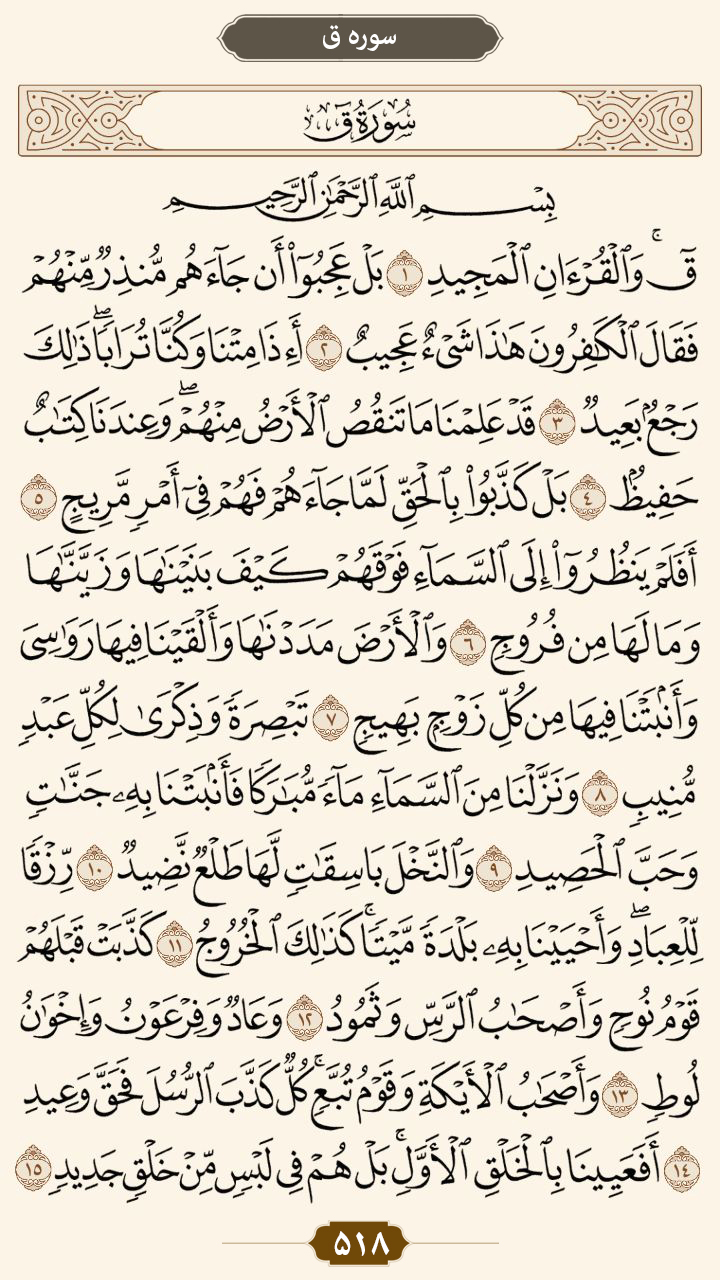 سوره ق
سُورَةُ قٓ
بِسْمِ ٱللَّهِ ٱلرَّحْمَٰنِ ٱلرَّحِيمِ
قٓۚ وَٱلْقُرْءَانِ ٱلْمَجِيدِ ١ بَلْ عَجِبُوٓا۟ أَن جَآءَهُم مُّنذِرٌ مِّنْهُمْ
فَقَالَ ٱلْكَٰفِرُونَ هَٰذَا شَىْءٌ عَجِيبٌ ٢ أَءِذَا مِتْنَا وَكُنَّا تُرَابًاۖ ذَٰلِكَ
رَجْعٌۢ بَعِيدٌ ٣ قَدْ عَلِمْنَا مَا تَنقُصُ ٱلْأَرْضُ مِنْهُمْۖ وَعِندَنَا كِتَٰبٌ
حَفِيظٌۢ ٤ بَلْ كَذَّبُوا۟ بِٱلْحَقِّ لَمَّا جَآءَهُمْ فَهُمْ فِىٓ أَمْرٍ مَّرِيجٍ ٥
أَفَلَمْ يَنظُرُوٓا۟ إِلَى ٱلسَّمَآءِ فَوْقَهُمْ كَيْفَ بَنَيْنَٰهَا وَزَيَّنَّٰهَا
وَمَا لَهَا مِن فُرُوجٍ ٦ وَٱلْأَرْضَ مَدَدْنَٰهَا وَأَلْقَيْنَا فِيهَا رَوَٰسِىَ
وَأَنۢبَتْنَا فِيهَا مِن كُلِّ زَوْجٍۭ بَهِيجٍ ٧ تَبْصِرَةً وَذِكْرَىٰ لِكُلِّ عَبْدٍ
مُّنِيبٍ ٨ وَنَزَّلْنَا مِنَ ٱلسَّمَآءِ مَآءً مُّبَٰرَكًا فَأَنۢبَتْنَا بِهِۦ جَنَّٰتٍ
وَحَبَّ ٱلْحَصِيدِ ٩ وَٱلنَّخْلَ بَاسِقَٰتٍ لَّهَا طَلْعٌ نَّضِيدٌ ١٠ رِّزْقًا
لِّلْعِبَادِۖ وَأَحْيَيْنَا بِهِۦ بَلْدَةً مَّيْتًاۚ كَذَٰلِكَ ٱلْخُرُوجُ ١١ كَذَّبَتْ قَبْلَهُمْ
قَوْمُ نُوحٍ وَأَصْحَٰبُ ٱلرَّسِّ وَثَمُودُ ١٢ وَعَادٌ وَفِرْعَوْنُ وَإِخْوَٰنُ
لُوطٍ ١٣ وَأَصْحَٰبُ ٱلْأَيْكَةِ وَقَوْمُ تُبَّعٍۚ كُلٌّ كَذَّبَ ٱلرُّسُلَ فَحَقَّ وَعِيدِ
١٤ أَفَعَيِينَا بِٱلْخَلْقِ ٱلْأَوَّلِۚ بَلْ هُمْ فِى لَبْسٍ مِّنْ خَلْقٍ جَدِيدٍ ١٥
۵۱۸